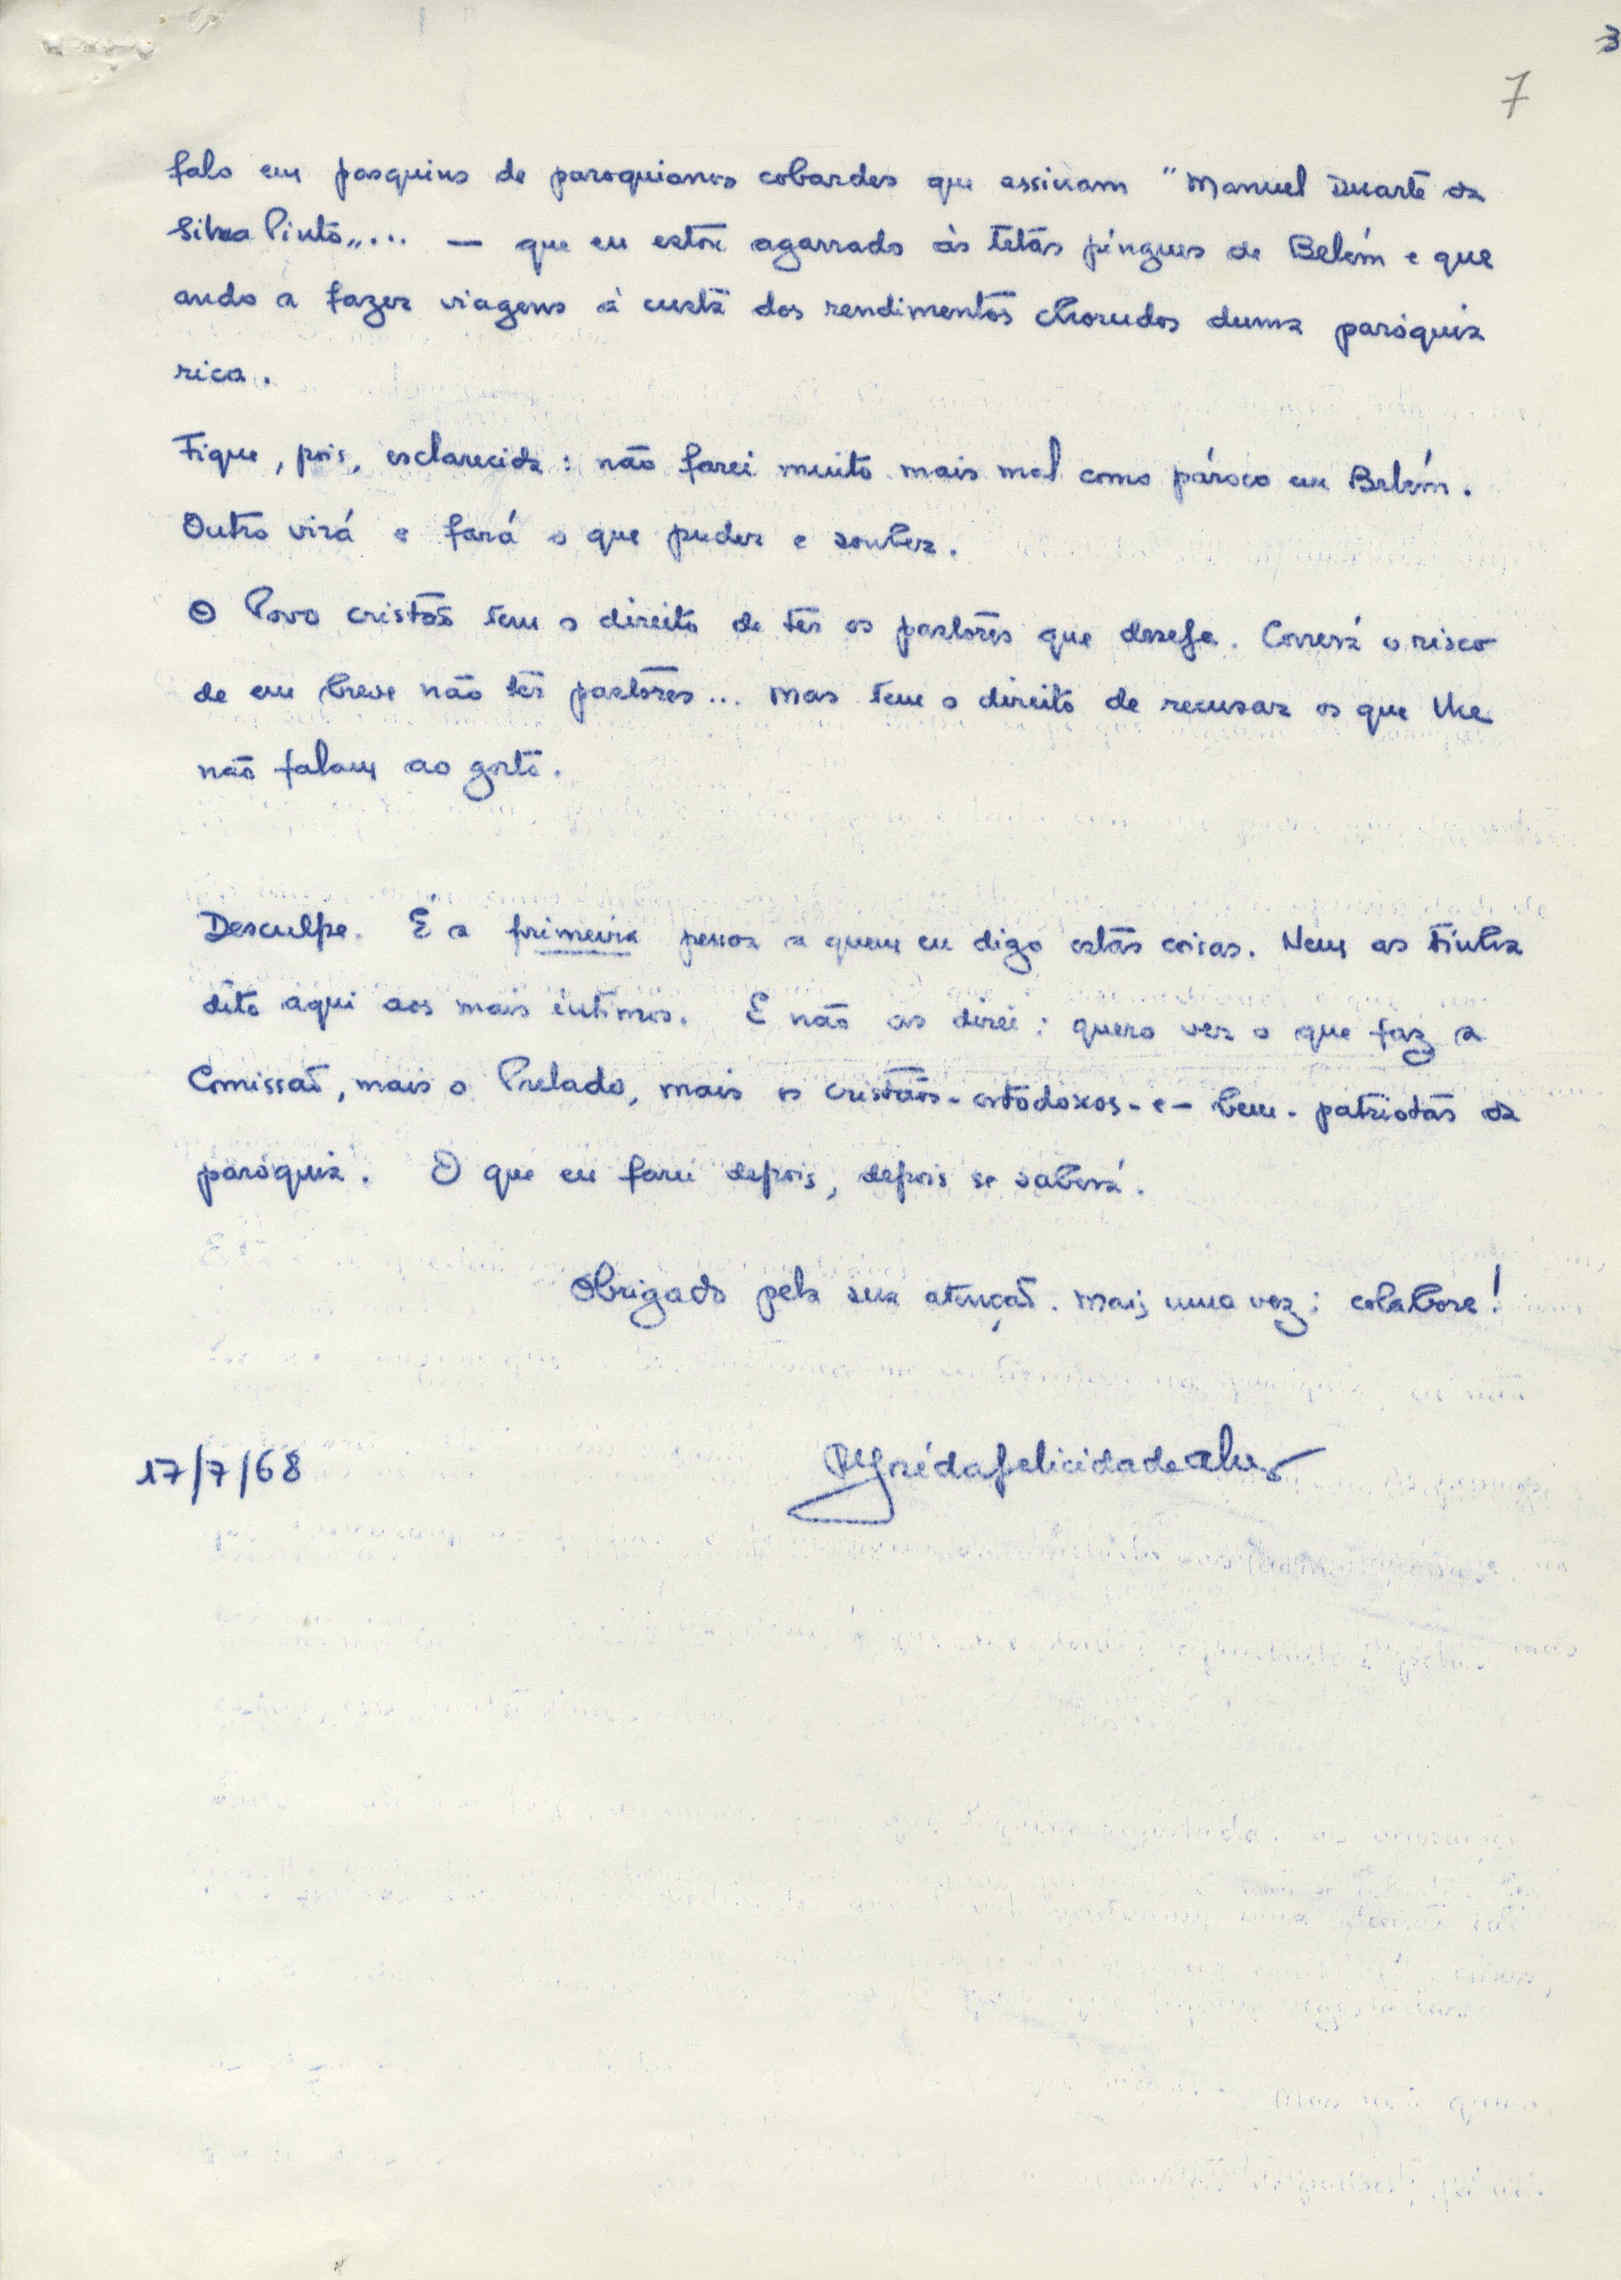 3
7
falo em pasquins de paroquianos cobardes que assinam "Manuel Duarte da
Silva Pinto„... — que eu estou agarrado às tetas pingues de Belém e que
ando a fazer viagens à custa dos rendimentos chorudos duma paróquia
rica.
Fique, pois, esclarecida: não farei muito mais mal como pároco em Belém.
Outro virá e fará o que puder e souber.
O Povo cristão tem o direito de ter os pastores que deseja. Correrá o risco
de em breve não ter pastores... mas tem o direito de recusar os que lhe
não falam ao gosto.
Desculpe. É a primeira pessoa a quem eu digo estas coisas. Nem as tinha
dito aqui aos mais íntimos. E não as direi: quero ver o que faz a
Comissão, mais o Prelado, mais os cristãos-ortodoxos-e-bem-patriotas da
paróquia. O que eu farei depois, depois se saberá.
Obrigado pela sua atenção. Mais uma vez: colabore!
17/7/68
José da Felicidade Alves